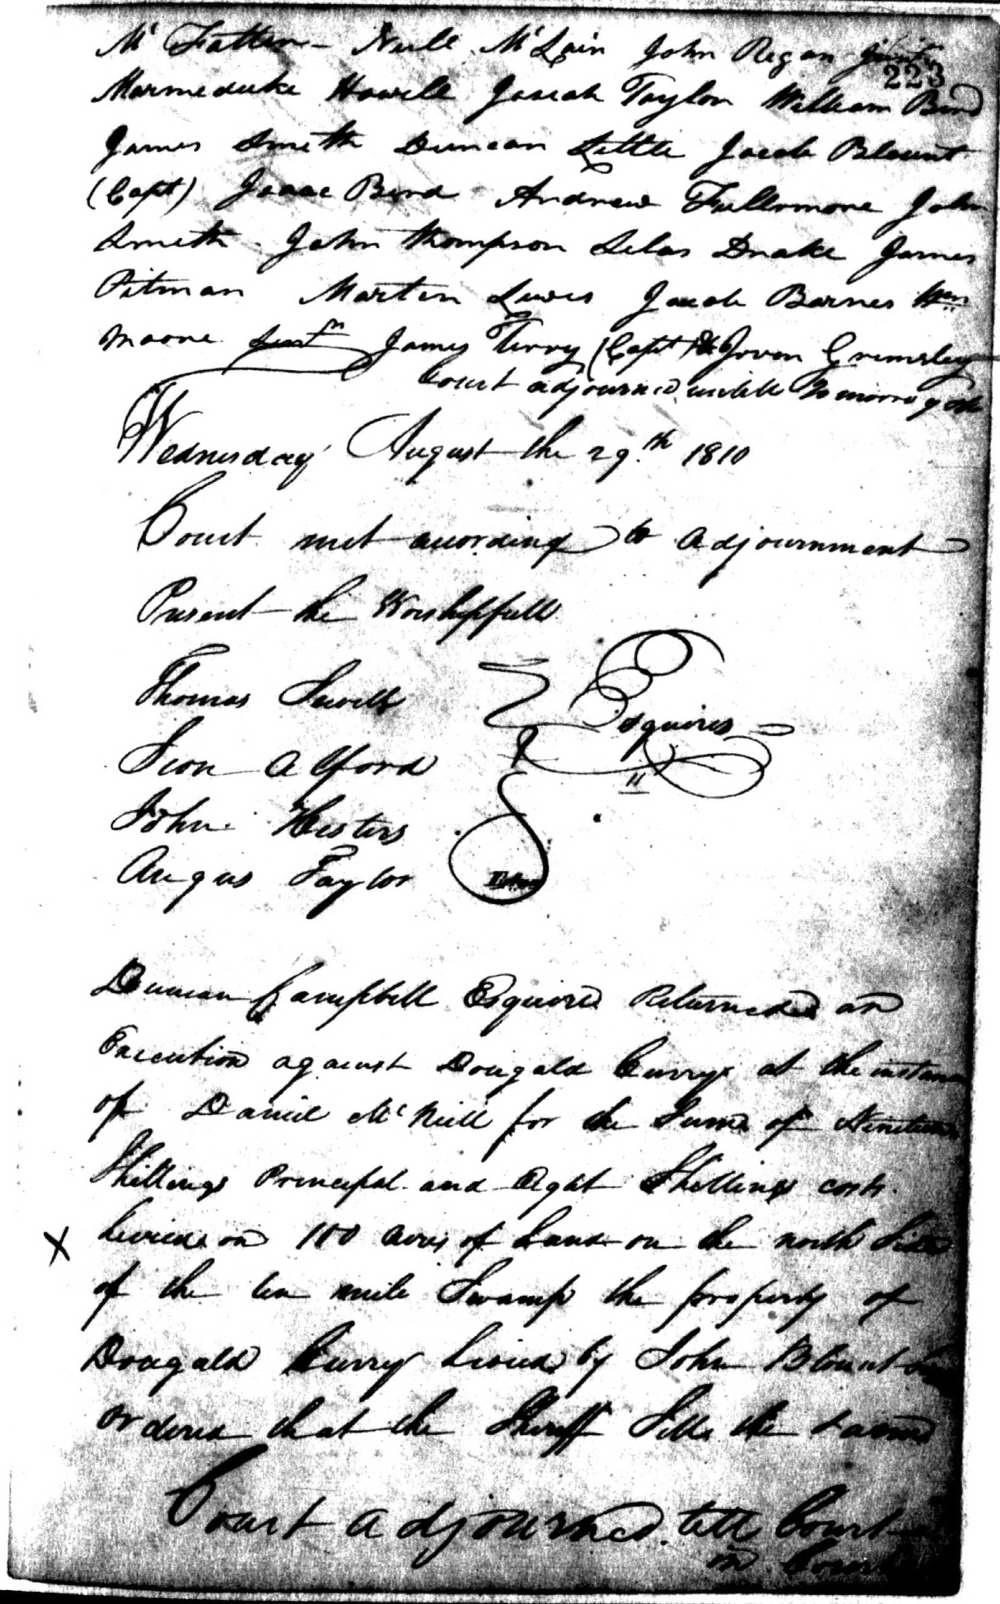 223
Mc Fatter - Neill McLain John Regan
Marmeduke Howell Josiah Taylor William Bird
James Smith Duncan Little Jacob Blount
(Capt) Isaac Bird Andrew Fullmore John
Smith John Thompson Silas Drake James
Pitman Martin Lewis Jacob Barnes Wm
Moore James Terry (Capt) & Joron Grimsley
Court adjourned untill Tomorrow
Wednesday August the 29th 1810
Court met acording to adjournment
Present the Worshipfull
Thomas Esquires
Sion Alford
John Hesters
Angus Taylor
Duncan Campbell Esquire Returned an
Execution against Dougald Curry at the instance
of Daniel McNeill for the Sum of Nineteen
Shillings Principal and Eight Shillings costs.
X Levied on 100 acres of Land on the north Side
of the ten mile Swamp the property of
Dougald Curry Levied by John Blount
ordered that the Sheriff Sells the Same
Court adjourned till Court
in